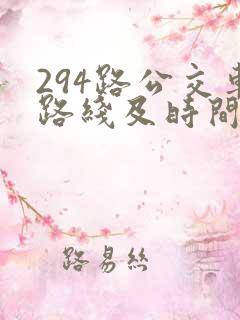 294路公交車
路綫及時間
路易絲